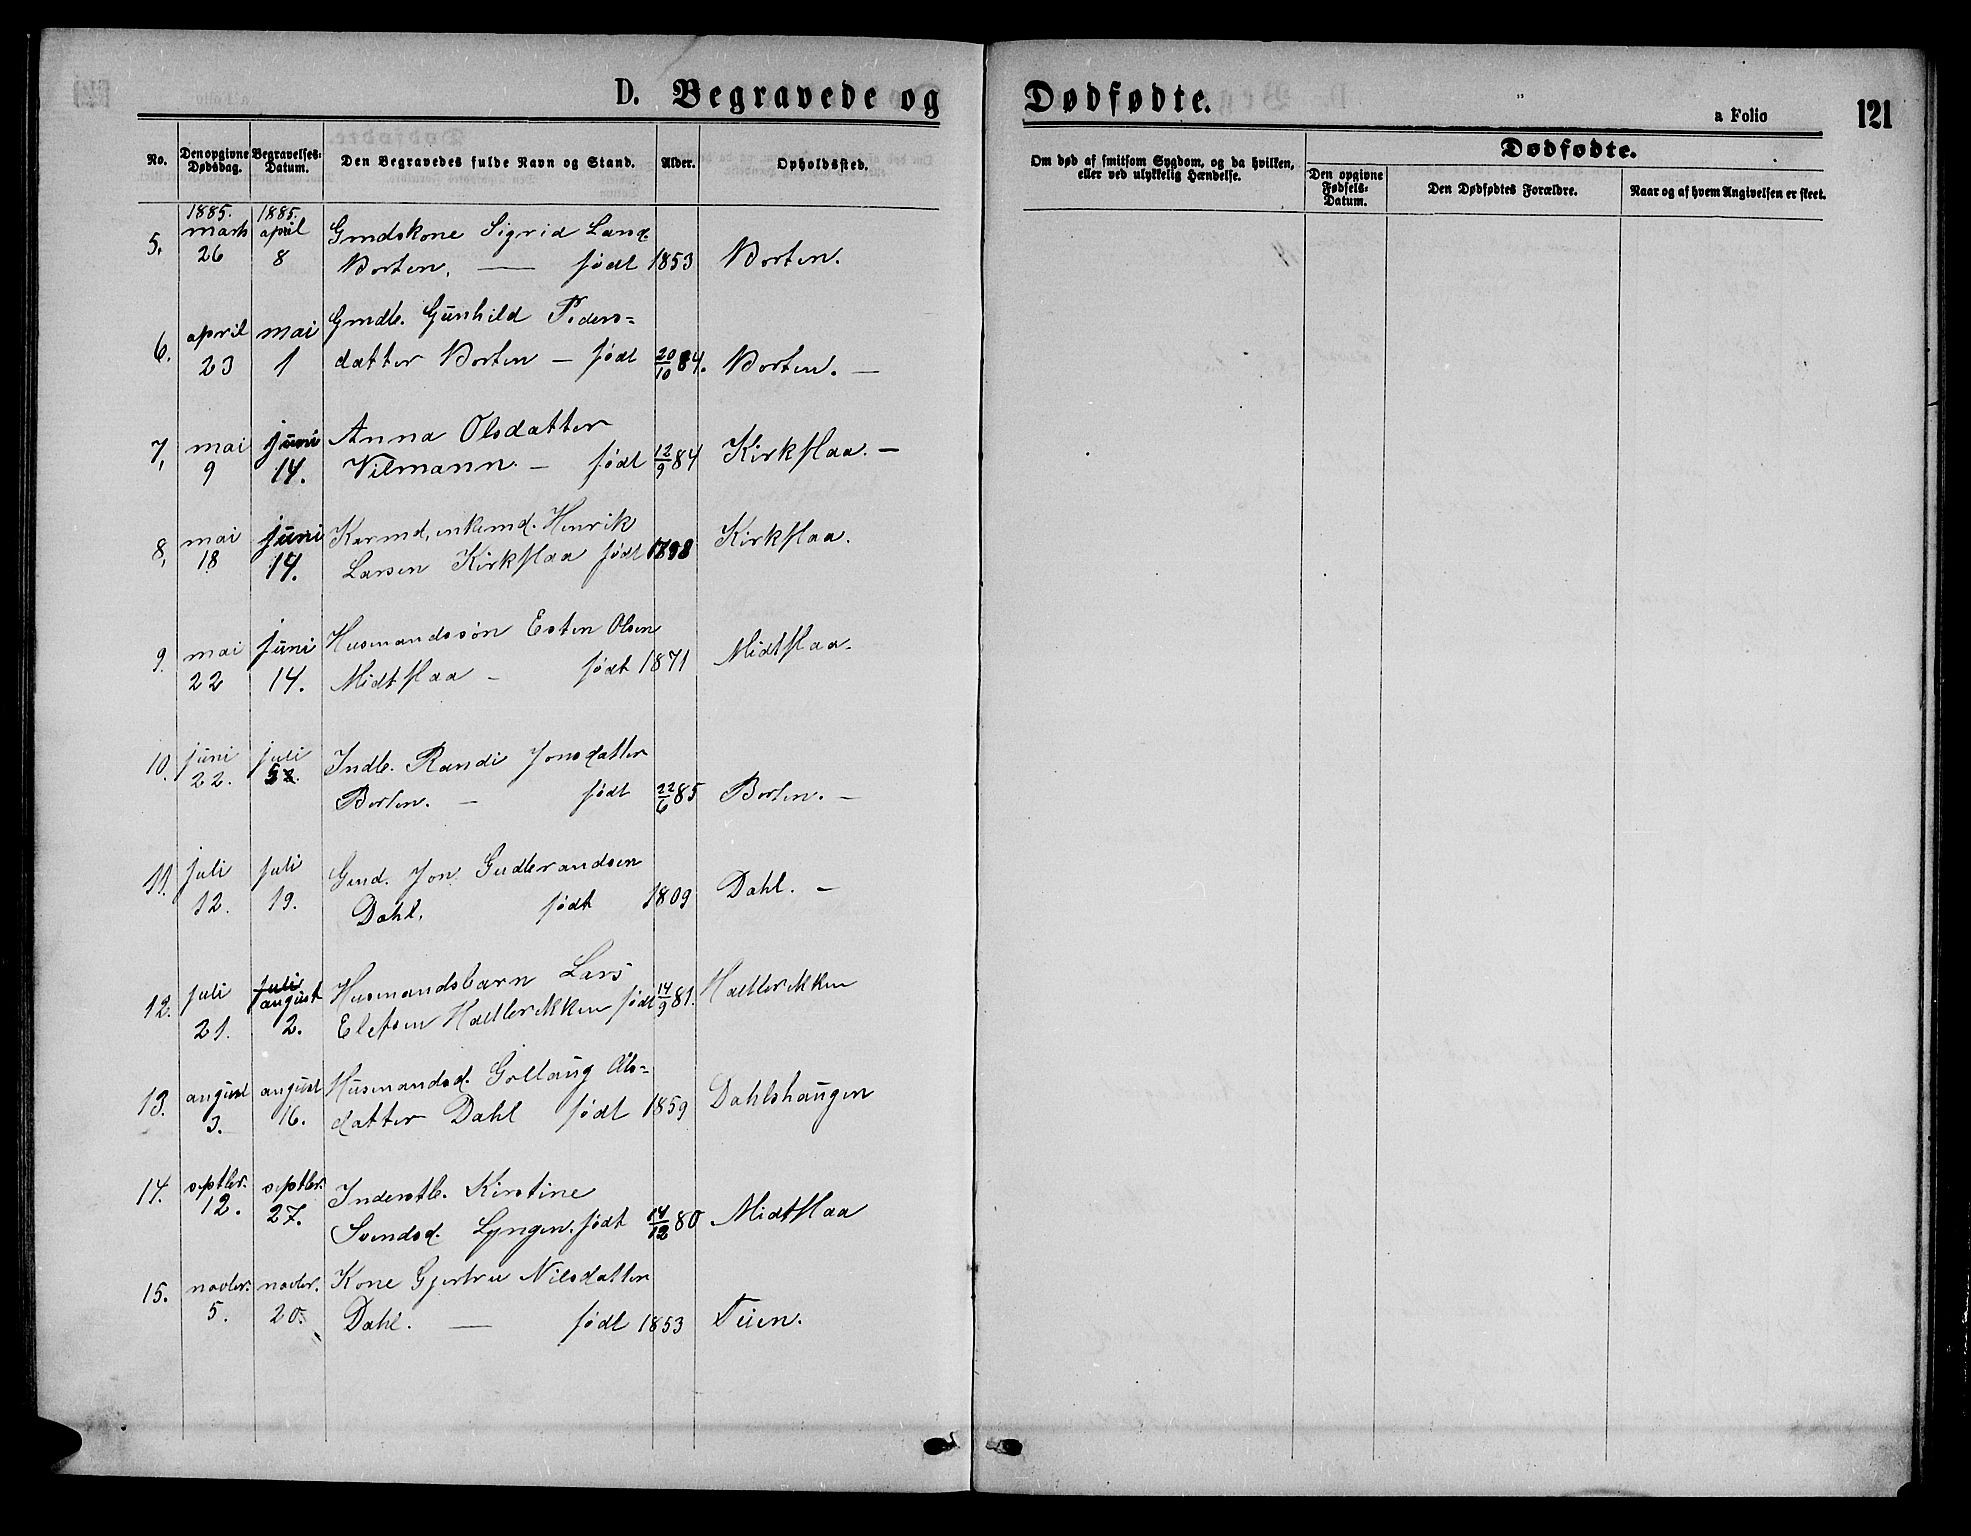 D. Begravede og Dødfødte.
a Folio 121
No. Den opgivne Dødsdag. Begravelses-Datum. Den Begravedes fulde Navn og Stand. Alder. Opholdssted.
Om død af smitsom Sygdom, og da hvilken, eller ved ulykkelig Hændelse.
Dødfødte.
Den opgivne Fødsels-Datum. Den Dødfødtes Forældre. Naar og af hvem Angivelsen er skeet.
1885. 1885.
5. marts april Gmdskone Sigrid Larsd.
26 8 Borten, — født 1853 Borten.
6. april mai Gmdb. Gunhild Peders=
23 1 datter Borten — født 20/10 84. Borten. —
7, mai juni Anna Olsdatter
9 14. Vilmann. — født 12/9 84 Kirkflaa. —
8, mai juni Karmd, enkemd. Henrik
18 14. Larsen Kirkflaa født 1898 Kirkflaa.
9. mai juni Husmandssøn Esten Olsen
22 14. Midtflaa — født 1871 Midtflaa.
10. juni juli Indb. Randi Jonsdatter
22. 5 Borten. — født 22/6 85 Borten. —
11. juli juli Gmd. Jon Gudbrandsen
12. 19. Dahl. født 1809 Dahl. —
12. juli juli august Husmandsbarn Lars
21. 2. Elefsen Haltbrekken født 14/9 81. Haltbrekken
13. august august Husmandsd. Gollaug Ols=
3. 16. datter Dahl født 1859 Dahlshaugen
14. septbr. septbr. Inderstb. Kirstine
12. 27. Svendsd. Lyngen. født 14/12 80 Midtflaa
15. novbr. novbr. Kone Gjertru Nilsdatter
5. 20. Dahl. — født 1853 Tuen.